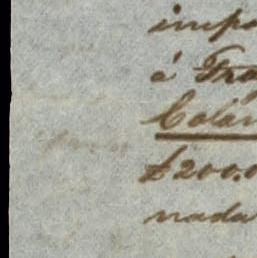 impo
á Fra
Colon
£200.0
nada